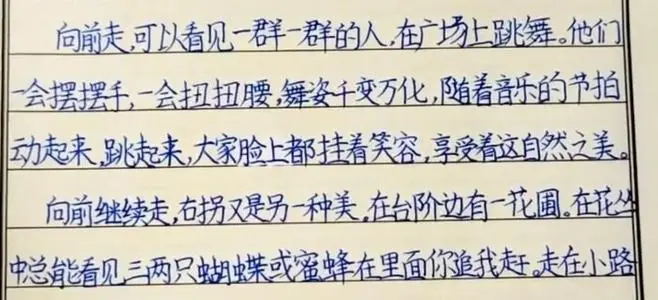 向前走,可以看见一群一群的人,在广场上跳舞。他们
一会摆摆手,一会扭扭腰,舞姿千变万化,随着音乐的节拍
动起来,跳起来,大家脸上都挂着笑容,享受着这自然之美。
向前继续走,右拐又是另一种美,在台阶边有一花圃。在花丛
中总能看见三两只蝴蝶或蜜蜂在里面你追我赶。走在小路